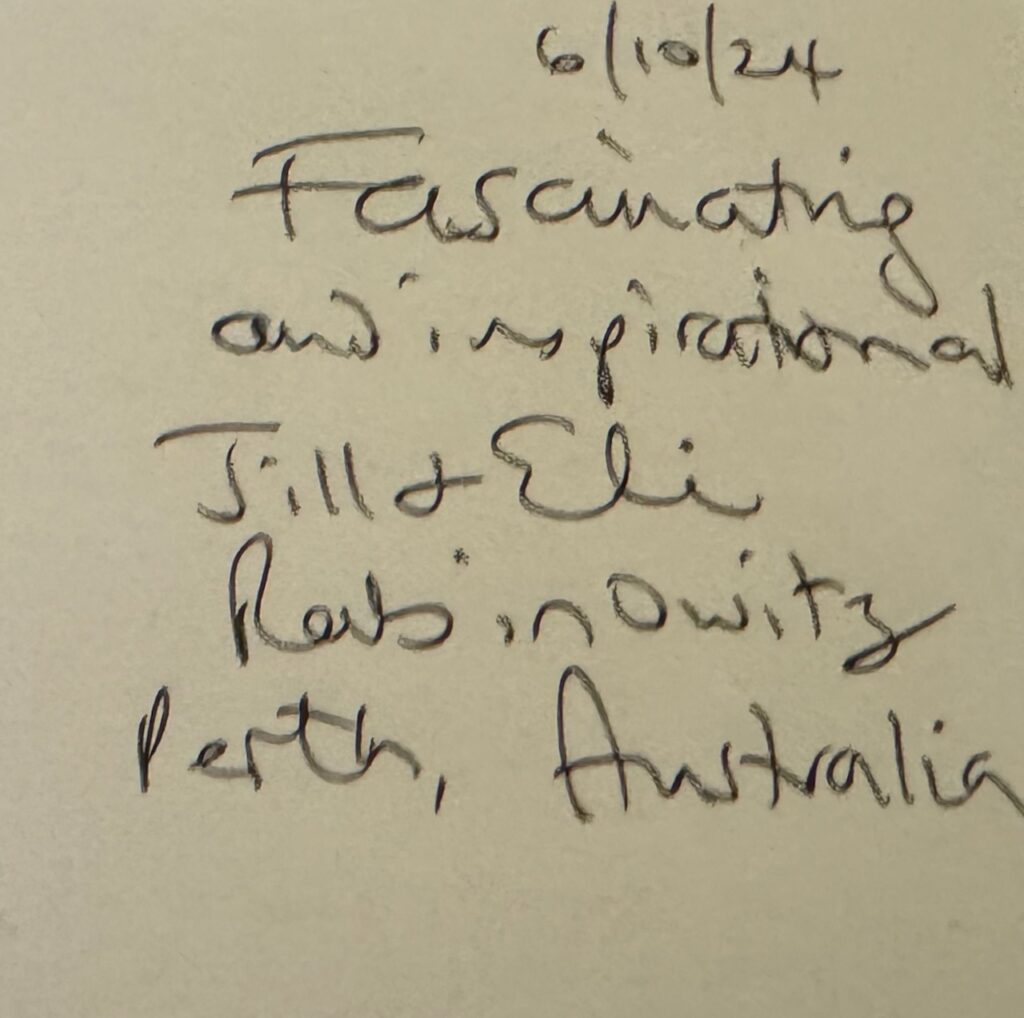 6/10/24
Fascinating
and inspirational
Jill & Eli
Rabinowitz
Perth, Australia